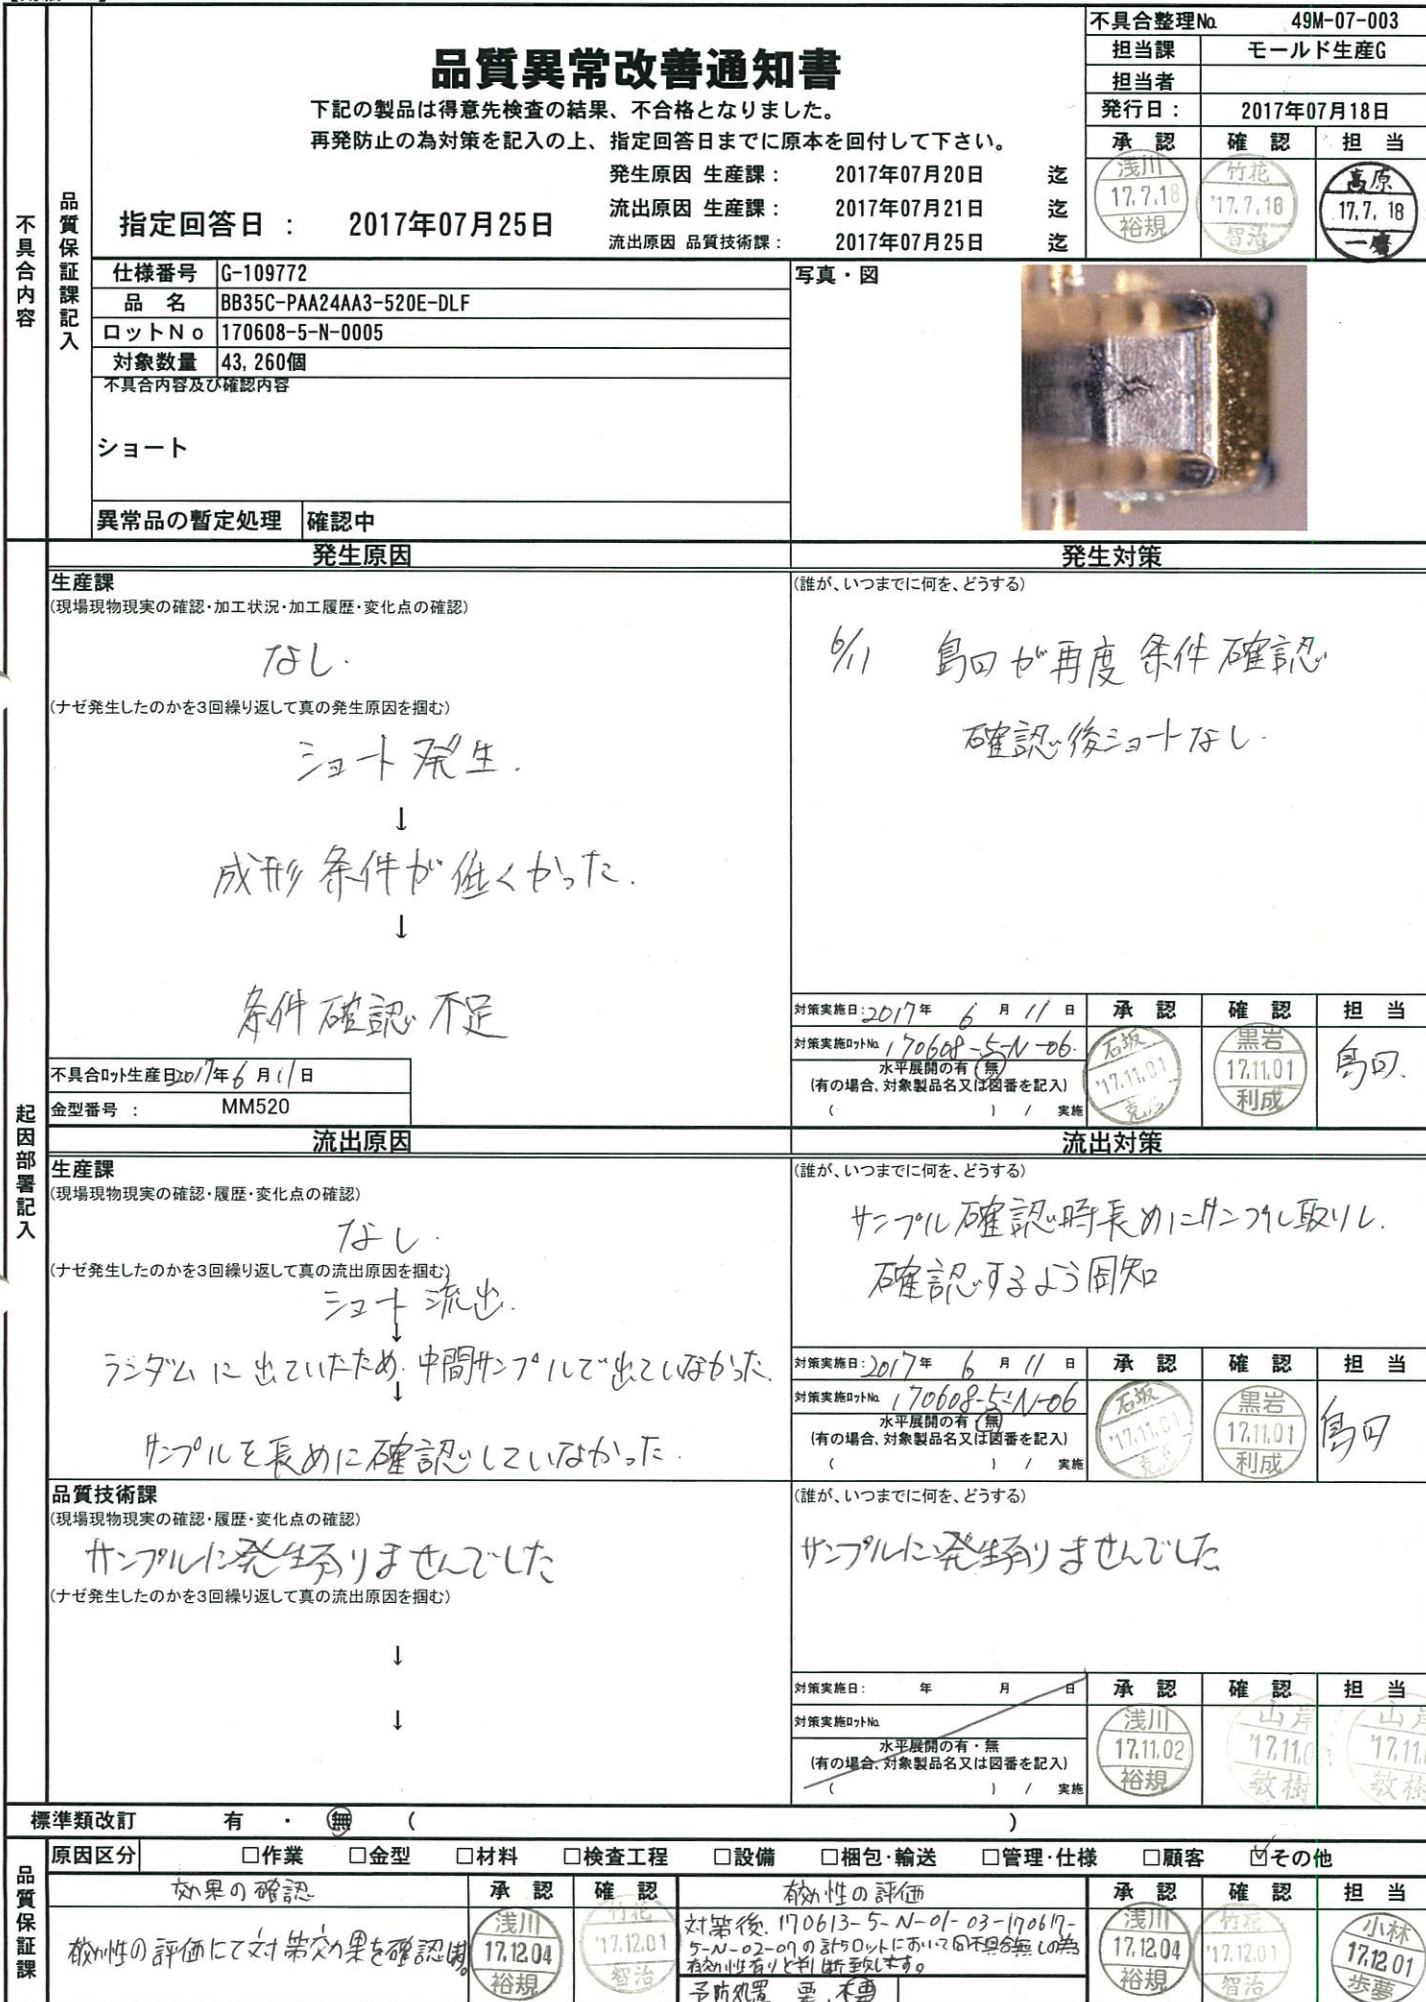 不具合整理No. 49M-07-003
担当課 モールド生産G
担当者
発行日： 2017年07月18日
品質異常改善通知書
下記の製品は得意先検査の結果、不合格となりました。
再発防止の為対策を記入の上、指定回答日までに原本を回付して下さい。
承認 確認 担当
浅川 17.7.18 裕規
竹花 '17.7.18 智治
高原 17.7.18
発生原因 生産課： 2017年07月20日 迄
流出原因 生産課： 2017年07月21日 迄
流出原因 品質技術課： 2017年07月25日 迄
指定回答日： 2017年07月25日
不具合内容
品質保証課記入
仕様番号 G-109772
品名 BB35C-PAA24AA3-520E-DLF
ロットNo 170608-5-N-0005
対象数量 43,260個
不具合内容及び確認内容
ショート
異常品の暫定処理 確認中
写真・図
起因部署記入
発生原因
生産課
(現場現物現実の確認・加工状況・加工履歴・変化点の確認)
なし.
(ナゼ発生したのかを3回繰り返して真の発生原因を掴む)
ショート発生.
↓
成形条件が低くかった.
↓
条件確認不足
不具合ロット生産日 2017年6月11日
金型番号： MM520
発生対策
(誰が、いつまでに何を、どうする)
6/11 島田が再度条件確認
確認後ショートなし.
対策実施日：2017年 6月 11日
対策実施ロットNo. 170608-5-N-06.
水平展開の有・無
(有の場合、対象製品名又は図番を記入)
( ) / 実施
承認 確認 担当
石坂 '17.11.01
黒岩 17.11.01 利成
島田.
流出原因
生産課
(現場現物現実の確認・履歴・変化点の確認)
なし.
(ナゼ発生したのかを3回繰り返して真の流出原因を掴む)
ショート流出.
↓
ランダムに出ていたため.中間サンプルで出ていなかった.
↓
サンプルを長めに確認していなかった.
流出対策
(誰が、いつまでに何を、どうする)
サンプル確認時長めにサンプル取りし.
確認するよう周知
対策実施日：2017年 6月 11日
対策実施ロットNo. 170608-5-N-06
水平展開の有・無
(有の場合、対象製品名又は図番を記入)
( ) / 実施
承認 確認 担当
石坂 '17.11.01
黒岩 17.11.01 利成
島田
品質技術課
(現場現物現実の確認・履歴・変化点の確認)
サンプルに発生有りませんでした
(ナゼ発生したのかを3回繰り返して真の流出原因を掴む)
↓
↓
(誰が、いつまでに何を、どうする)
サンプルに発生有りませんでした
対策実施日： 年 月 日
対策実施ロットNo.
水平展開の有・無
(有の場合、対象製品名又は図番を記入)
( ) / 実施
承認 確認 担当
浅川 17.11.02 裕規
山岸 '17.11.0 敏樹
山岸 '17.11. 敏樹
標準類改訂 有 ・ 無 ( )
品質保証課
原因区分 □作業 □金型 □材料 □検査工程 □設備 □梱包・輸送 □管理・仕様 □顧客 ☑その他
効果の確認 承認 確認
有効性の評価にて対策効果を確認
浅川 17.12.04 裕規
竹花 '17.12.01 智治
有効性の評価 承認 確認 担当
対策後.170613-5-N-01-03-170617-
5-N-02-07の計5ロットにおいて同不具合無しの為
有効性有りと判断致します。
予防処置 要.不要
浅川 17.12.04 裕規
竹花 '17.12.01 智治
小林 17.12.01 歩夢